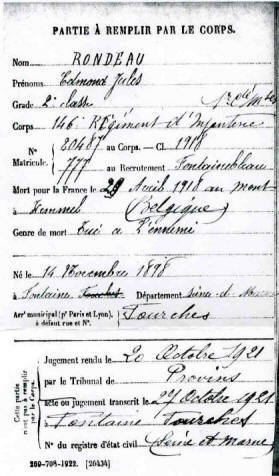 PARTIE À REMPLIR PAR LE CORPS.
Nom RONDEAU
Prénoms Edmond Jules
Grade 2e classe
Corps 146 Régiment d'Infanterie
N° 20487 au Corps. — Cl. 1918
Matricule. 777 au Recrutement Fontainebleau
Mort pour la France le 29 Avril 1918 au Mont
à Kemmel (Belgique)
Genre de mort Tué à l'ennemi
Né le 14 Novembre 1898
à Fontaine Département Seine et Marne
Arrt municipal (pr Paris et Lyon), à défaut rue et N°. Fourches
Cette partie n'est pas à remplir par le Corps.
Jugement rendu le 20 Octobre 1921
par le Tribunal de Provins
acte ou jugement transcrit le 27 Octobre 1921
à Fontaine Fourches
N° du registre d'état civil (Seine et Marne)
269-708-1922. [26434]